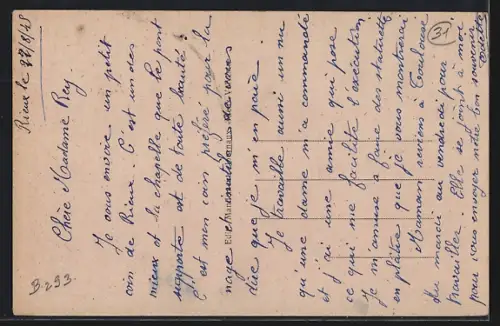 Rieux le 22/8/45
Chère Madame Rey.
Je vous envoie un petit
coin de Rieux. C'est un des
mieux et la chapelle que le pont
supporte est de toute beauté.
C'est mon coin préféré pour la
nage et inutile de vous
dire que je m'en paie.
Je travaille aussi un nu
qu'une dame m'a commandé
et j'ai une amie qui pose
ce qui me facilite l'exécution.
Je m'amuse à faire des statuettes
en plâtre que je vous montrerai
Maman revient à Toulouse
du mardi au vendredi pour
travailler. Elle se joint à moi
pour vous envoyer notre bon souvenir
Odette
31
B.293